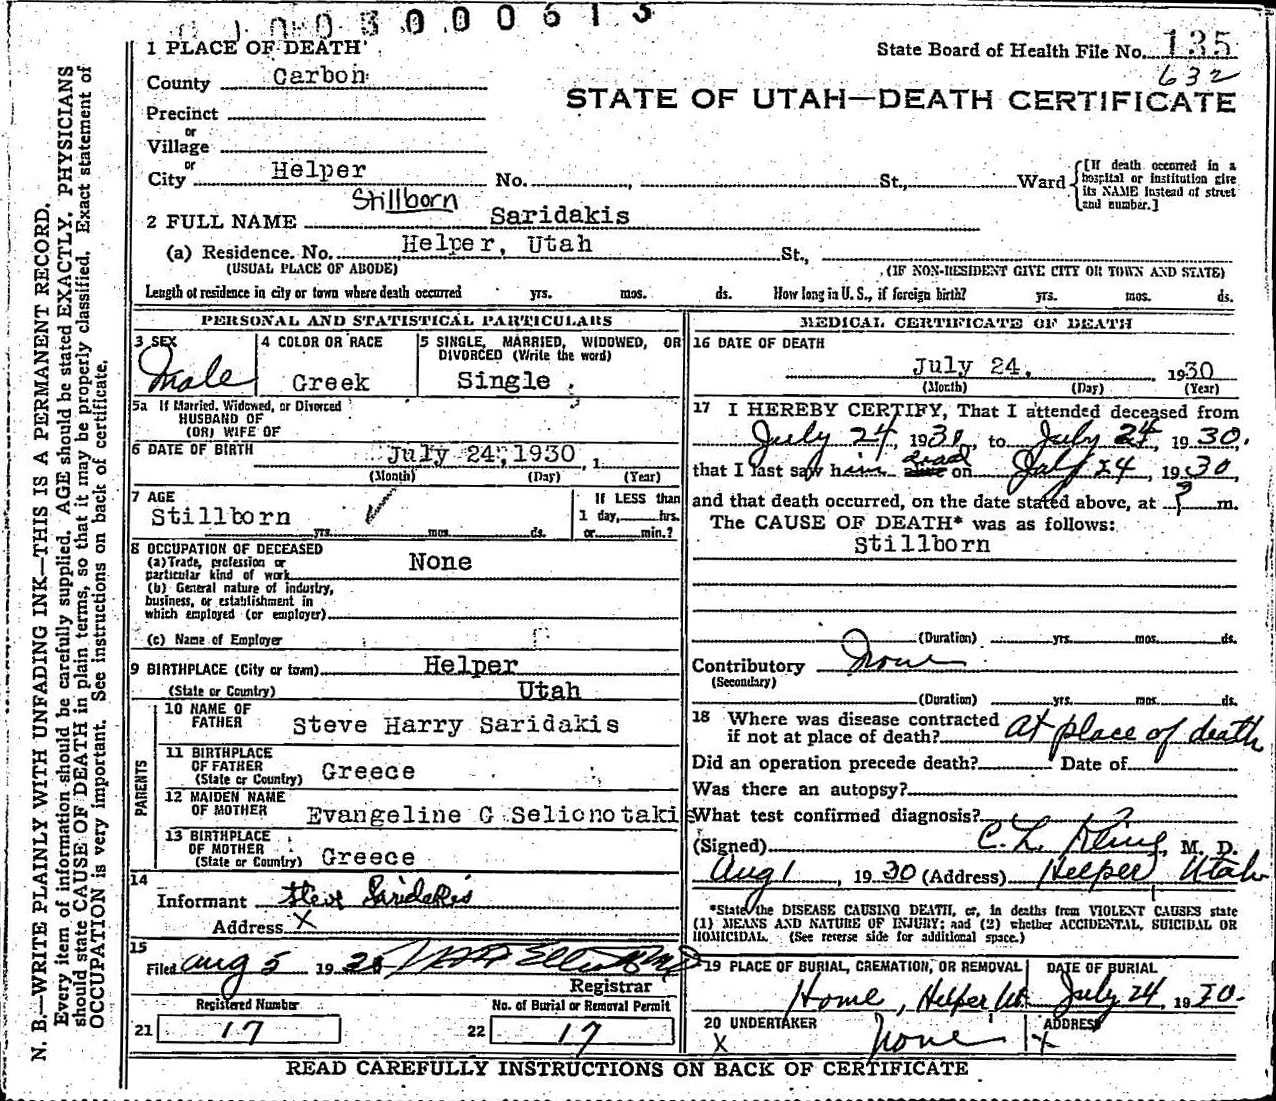 0 1 0 0 3 0 0 0 6 1 3
1 PLACE OF DEATH
State Board of Health File No. 135
632
County Carbon
STATE OF UTAH—DEATH CERTIFICATE
Precinct
or
Village
or
City Helper No. , St., Ward
[If death occurred in a hospital or institution give its NAME instead of street and number.]
Stillborn
2 FULL NAME Saridakis
(a) Residence. No. Helper, Utah St.,
(USUAL PLACE OF ABODE) (IF NON-RESIDENT GIVE CITY OR TOWN AND STATE)
Length of residence in city or town where death occurred yrs. mos. ds. How long in U. S., if foreign birth? yrs. mos. ds.
PERSONAL AND STATISTICAL PARTICULARS
3 SEX
Male
4 COLOR OR RACE
Greek
5 SINGLE, MARRIED, WIDOWED, OR
DIVORCED (Write the word)
Single
5a If Married, Widowed, or Divorced
HUSBAND OF
(OR) WIFE OF
6 DATE OF BIRTH July 24, 1930, 1
(Month) (Day) (Year)
7 AGE
Stillborn
yrs. mos. ds.
If LESS than
1 day, hrs.
or min.?
8 OCCUPATION OF DECEASED
(a) Trade, profession or
particular kind of work None
(b) General nature of industry,
business, or establishment in
which employed (or employer)
(c) Name of Employer
9 BIRTHPLACE (City or town) Helper
(State or Country) Utah
PARENTS
10 NAME OF
FATHER Steve Harry Saridakis
11 BIRTHPLACE
OF FATHER
(State or Country) Greece
12 MAIDEN NAME
OF MOTHER Evangeline G Selionotakis
13 BIRTHPLACE
OF MOTHER
(State or Country) Greece
14
Informant Steve Saridakis
Address X
15
Filed Aug 5 1930
Registrar
Registered Number
21 17
No. of Burial or Removal Permit
22 17
MEDICAL CERTIFICATE OF DEATH
16 DATE OF DEATH
July 24, 1930
(Month) (Day) (Year)
17 I HEREBY CERTIFY, That I attended deceased from
July 24, 1930, to July 24, 1930.
that I last saw him dead on July 24, 1930
and that death occurred, on the date stated above, at ? m.
The CAUSE OF DEATH* was as follows:
Stillborn
(Duration) yrs. mos. ds.
Contributory None
(Secondary)
(Duration) yrs. mos. ds.
18 Where was disease contracted
if not at place of death? At place of death
Did an operation precede death? Date of
Was there an autopsy?
What test confirmed diagnosis?
(Signed) C. L. , M. D.
Aug 1, 1930 (Address) Helper Utah
*State the DISEASE CAUSING DEATH, or, in deaths from VIOLENT CAUSES state
(1) MEANS AND NATURE OF INJURY; and (2) whether ACCIDENTAL, SUICIDAL OR
HOMICIDAL. (See reverse side for additional space.)
19 PLACE OF BURIAL, CREMATION, OR REMOVAL
Home, Helper Ut.
DATE OF BURIAL
July 24, 1930.
20 UNDERTAKER
X None
ADDRESS
X
READ CAREFULLY INSTRUCTIONS ON BACK OF CERTIFICATE
N. B.—WRITE PLAINLY WITH UNFADING INK—THIS IS A PERMANENT RECORD.
Every item of information should be carefully supplied. AGE should be stated EXACTLY. PHYSICIANS
should state CAUSE OF DEATH in plain terms, so that it may be properly classified. Exact statement of
OCCUPATION is very important. See instructions on back of certificate.